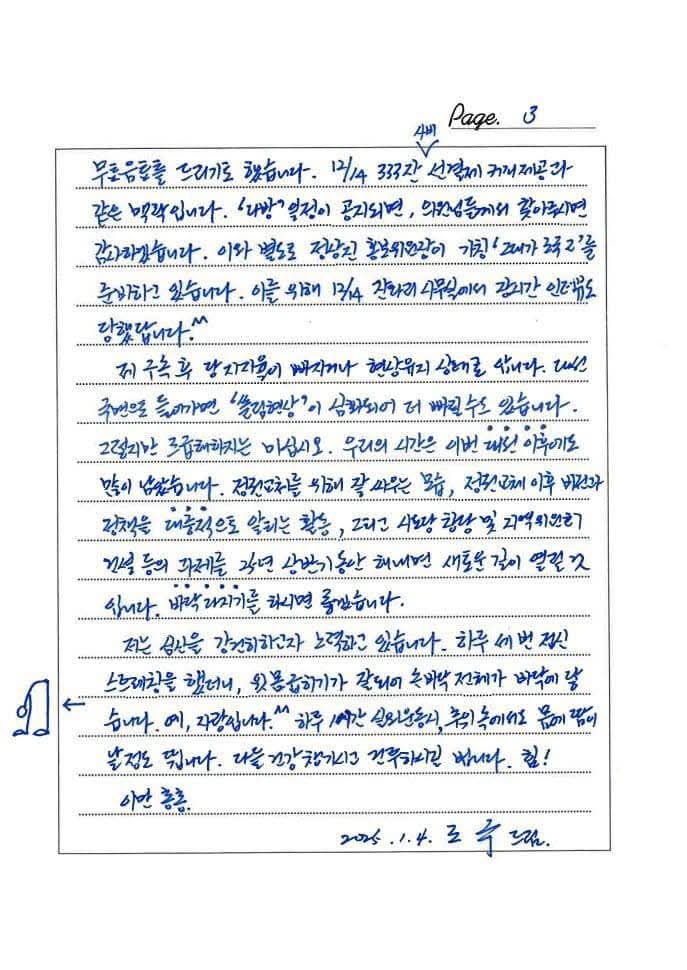 Page. 3
사비
무료음료를 드리기로 했습니다. 12/14 333잔 선결제 커피제공과
같은 맥락입니다. '다방' 일정이 공지되면, 의원님들께서 찾아주시면
감사하겠습니다. 이와 별도로 정상진 홍보위원장이 가칭 '그대가 조국 2'를
준비하고 있습니다. 이를 위해 12/14 잔파리 사무실에서 장시간 인터뷰도
당했답니다.^^
제 구속 후 당 지지율이 빠지거나 현상유지 상태로 압니다. 대선
국면으로 들어가면 '쏠림현상'이 심화되어 더 빠질 수도 있습니다.
그렇지만 조급해하지는 마십시오. 우리의 시간은 이번 대선 이후에도
많이 남았습니다. 정권교체를 위해 잘 싸우는 모습, 정권교체 이후 비전과
정책을 대중적으로 알리는 활동, 그리고 시도당 창당 및 지역위원회
건설 등의 과제를 25년 상반기 동안 해내면 새로운 길이 열릴 것
입니다. 바닥 다지기를 하시면 좋겠습니다.
저는 심신을 강건히하고자 노력하고 있습니다. 하루 세 번 정신
스트레칭을 했더니, 윗몸굽히기가 잘되어 손바닥 전체가 바닥에 닿
습니다. 예, 자랑입니다.^^ 하루 1시간 실외운동시, 추위 속에서도 몸에 땀이
날 정도 뜁니다. 다들 건강 챙기시고 건투하시길 빕니다. 힘!
이만 총총.
2025.1.4. 조 국 드림.